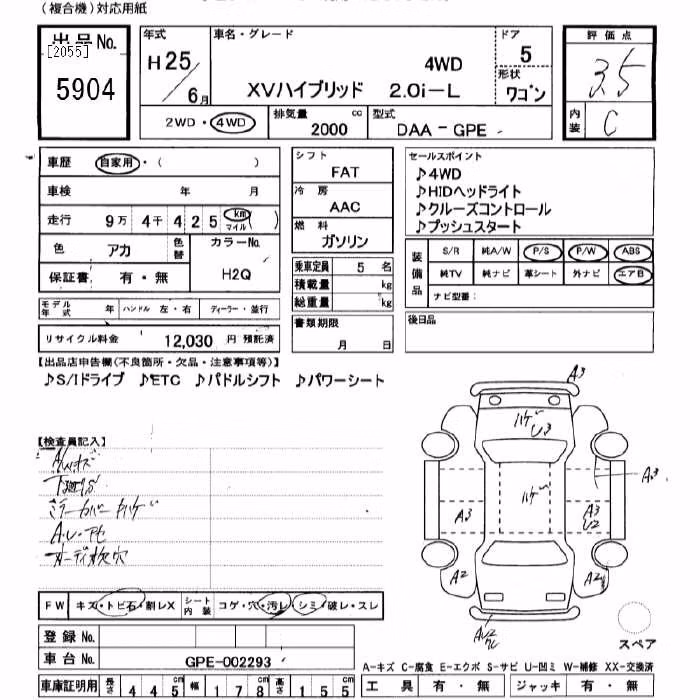 (複合機)対応用紙
出品No.
[2055]
5904
年式
H25/6月
車名・グレード
4WD
XVハイブリッド 2.0i-L
ドア
5
形状
ワゴン
2WD・4WD
排気量
2000 cc
型式
DAA-GPE
評価点
3.5
内装
C
車歴 自家用・( )
車検 年 月
走行 9万 4千 4 2 5 km マイル ( )
色 アカ 色替 カラーNo.
H2Q
保証書 有・無
シフト
FAT
冷房
AAC
燃料
ガソリン
乗車定員 5 名
積載量 kg
総重量 kg
書類期限
月 日
セールスポイント
♪4WD
♪HIDヘッドライト
♪クルーズコントロール
♪プッシュスタート
装備品
S/R 純A/W P/S P/W ABS
純TV 純ナビ 革シート 外ナビ エアB
ナビ型番:
後日品
モデル年式 年 ハンドル 左・右 ディーラー・並行
リサイクル料金 12,030 円 預託済
【出品店申告欄(不良箇所・欠品・注意事項等)】
♪S/Iドライブ ♪ETC ♪パドルシフト ♪パワーシート
【検査員記入】
ミラーカバーハゲ
オーディオ穴
FW キズ・トビ石・割レX シート内装 コゲ・穴・汚レ・シミ・破レ・スレ
登録No.
車台No. GPE-002293
車庫証明用 長さ 4 4 5 cm 幅 1 7 8 cm 高さ 1 5 5 cm
A3
ハゲ
U3
A3
ハゲ
A3
A3
U2
A2
A2
スペア
A-キズ C-腐食 E-エクボ S-サビ U-凹ミ W-補修 XX-交換済
工具 有・無 ジャッキ 有・無